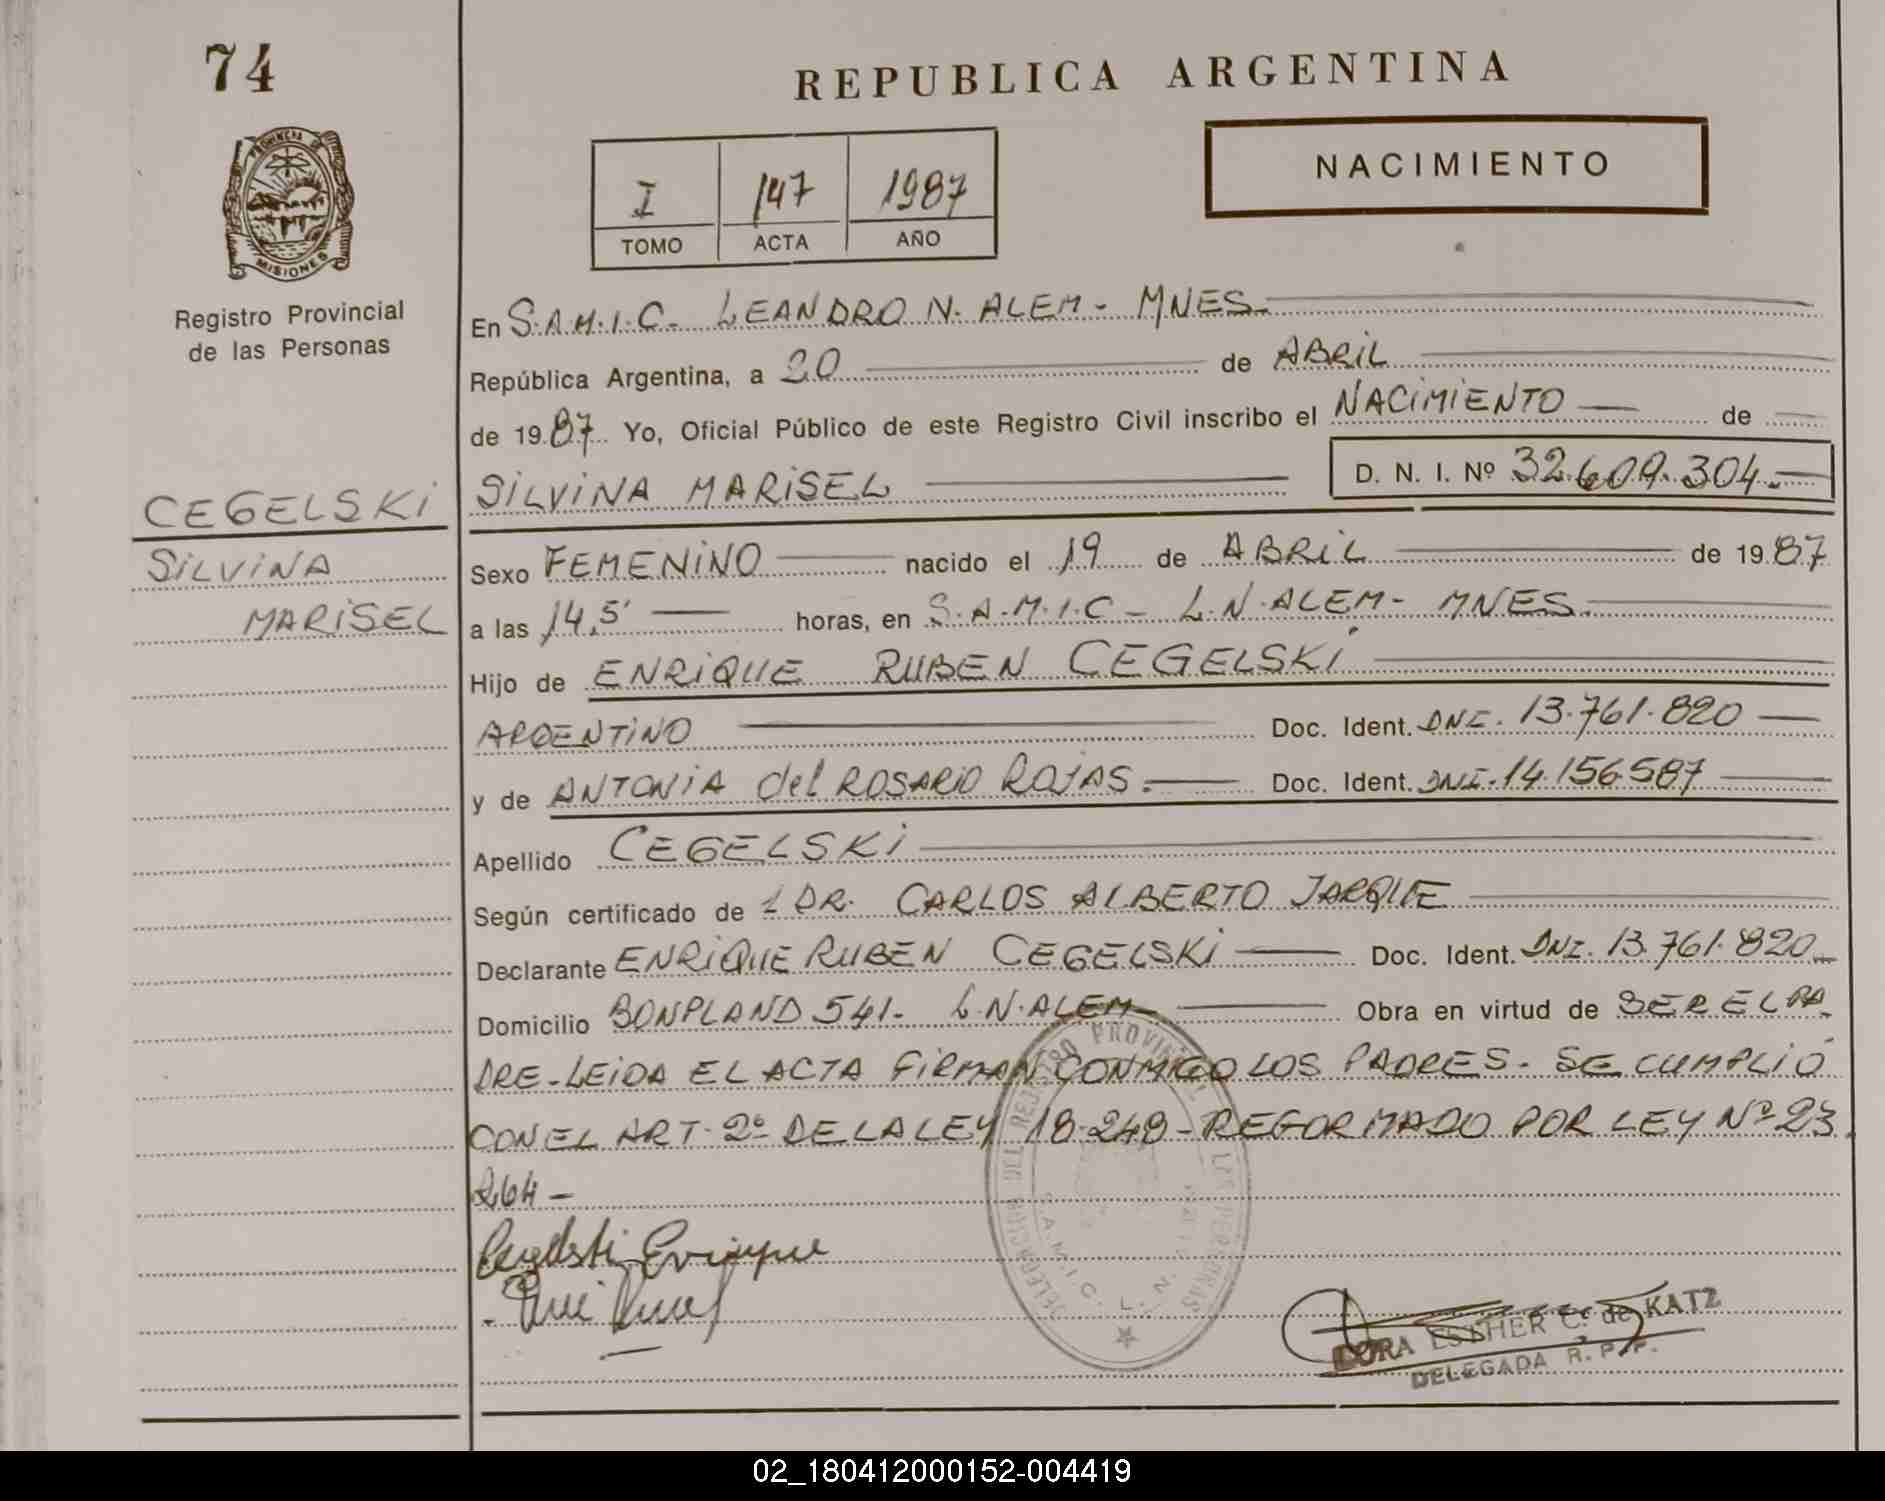 74
REPUBLICA ARGENTINA
NACIMIENTO
I 147 1987
TOMO ACTA AÑO
PROVINCIA DE
MISIONES
Registro Provincial
de las Personas
CEGELSKI
SILVINA
MARISEL
En S.A.M.I.C. LEANDRO N. ALEM - MNES.
República Argentina, a 20 de ABRIL
de 1987 Yo, Oficial Público de este Registro Civil inscribo el NACIMIENTO de
SILVINA MARISEL D. N. I. Nº 32.609.304.-
Sexo FEMENINO nacido el 19 de ABRIL de 1987
a las 14,5' horas, en S.A.M.I.C - L.N.ALEM - MNES.
Hijo de ENRIQUE RUBEN CEGELSKI
ARGENTINO Doc. Ident. DNI. 13.761.820
y de ANTONIA del ROSARIO ROJAS. Doc. Ident. DNI. 14.156.587
Apellido CEGELSKI
Según certificado de DR. CARLOS ALBERTO JARQUE
Declarante ENRIQUE RUBEN CEGELSKI Doc. Ident. DNI. 13.761.820
Domicilio BONPLAND 541 - L.N.ALEM Obra en virtud de SER EL PA
DRE - LEIDA EL ACTA FIRMAN CONMIGO LOS PADRES - SE CUMPLIÓ
CON EL ART. 2º DE LA LEY 18.248 - REFORMADO POR LEY Nº 23
264 -
Cegelski Enrique
DELEGACION DEL REGISTRO PROVINCIAL DE LAS PERSONAS
S.A.M.I.C. L. N.
DORA ESTHER C. de KATZ
DELEGADA R. P. P.
02_180412000152-004419